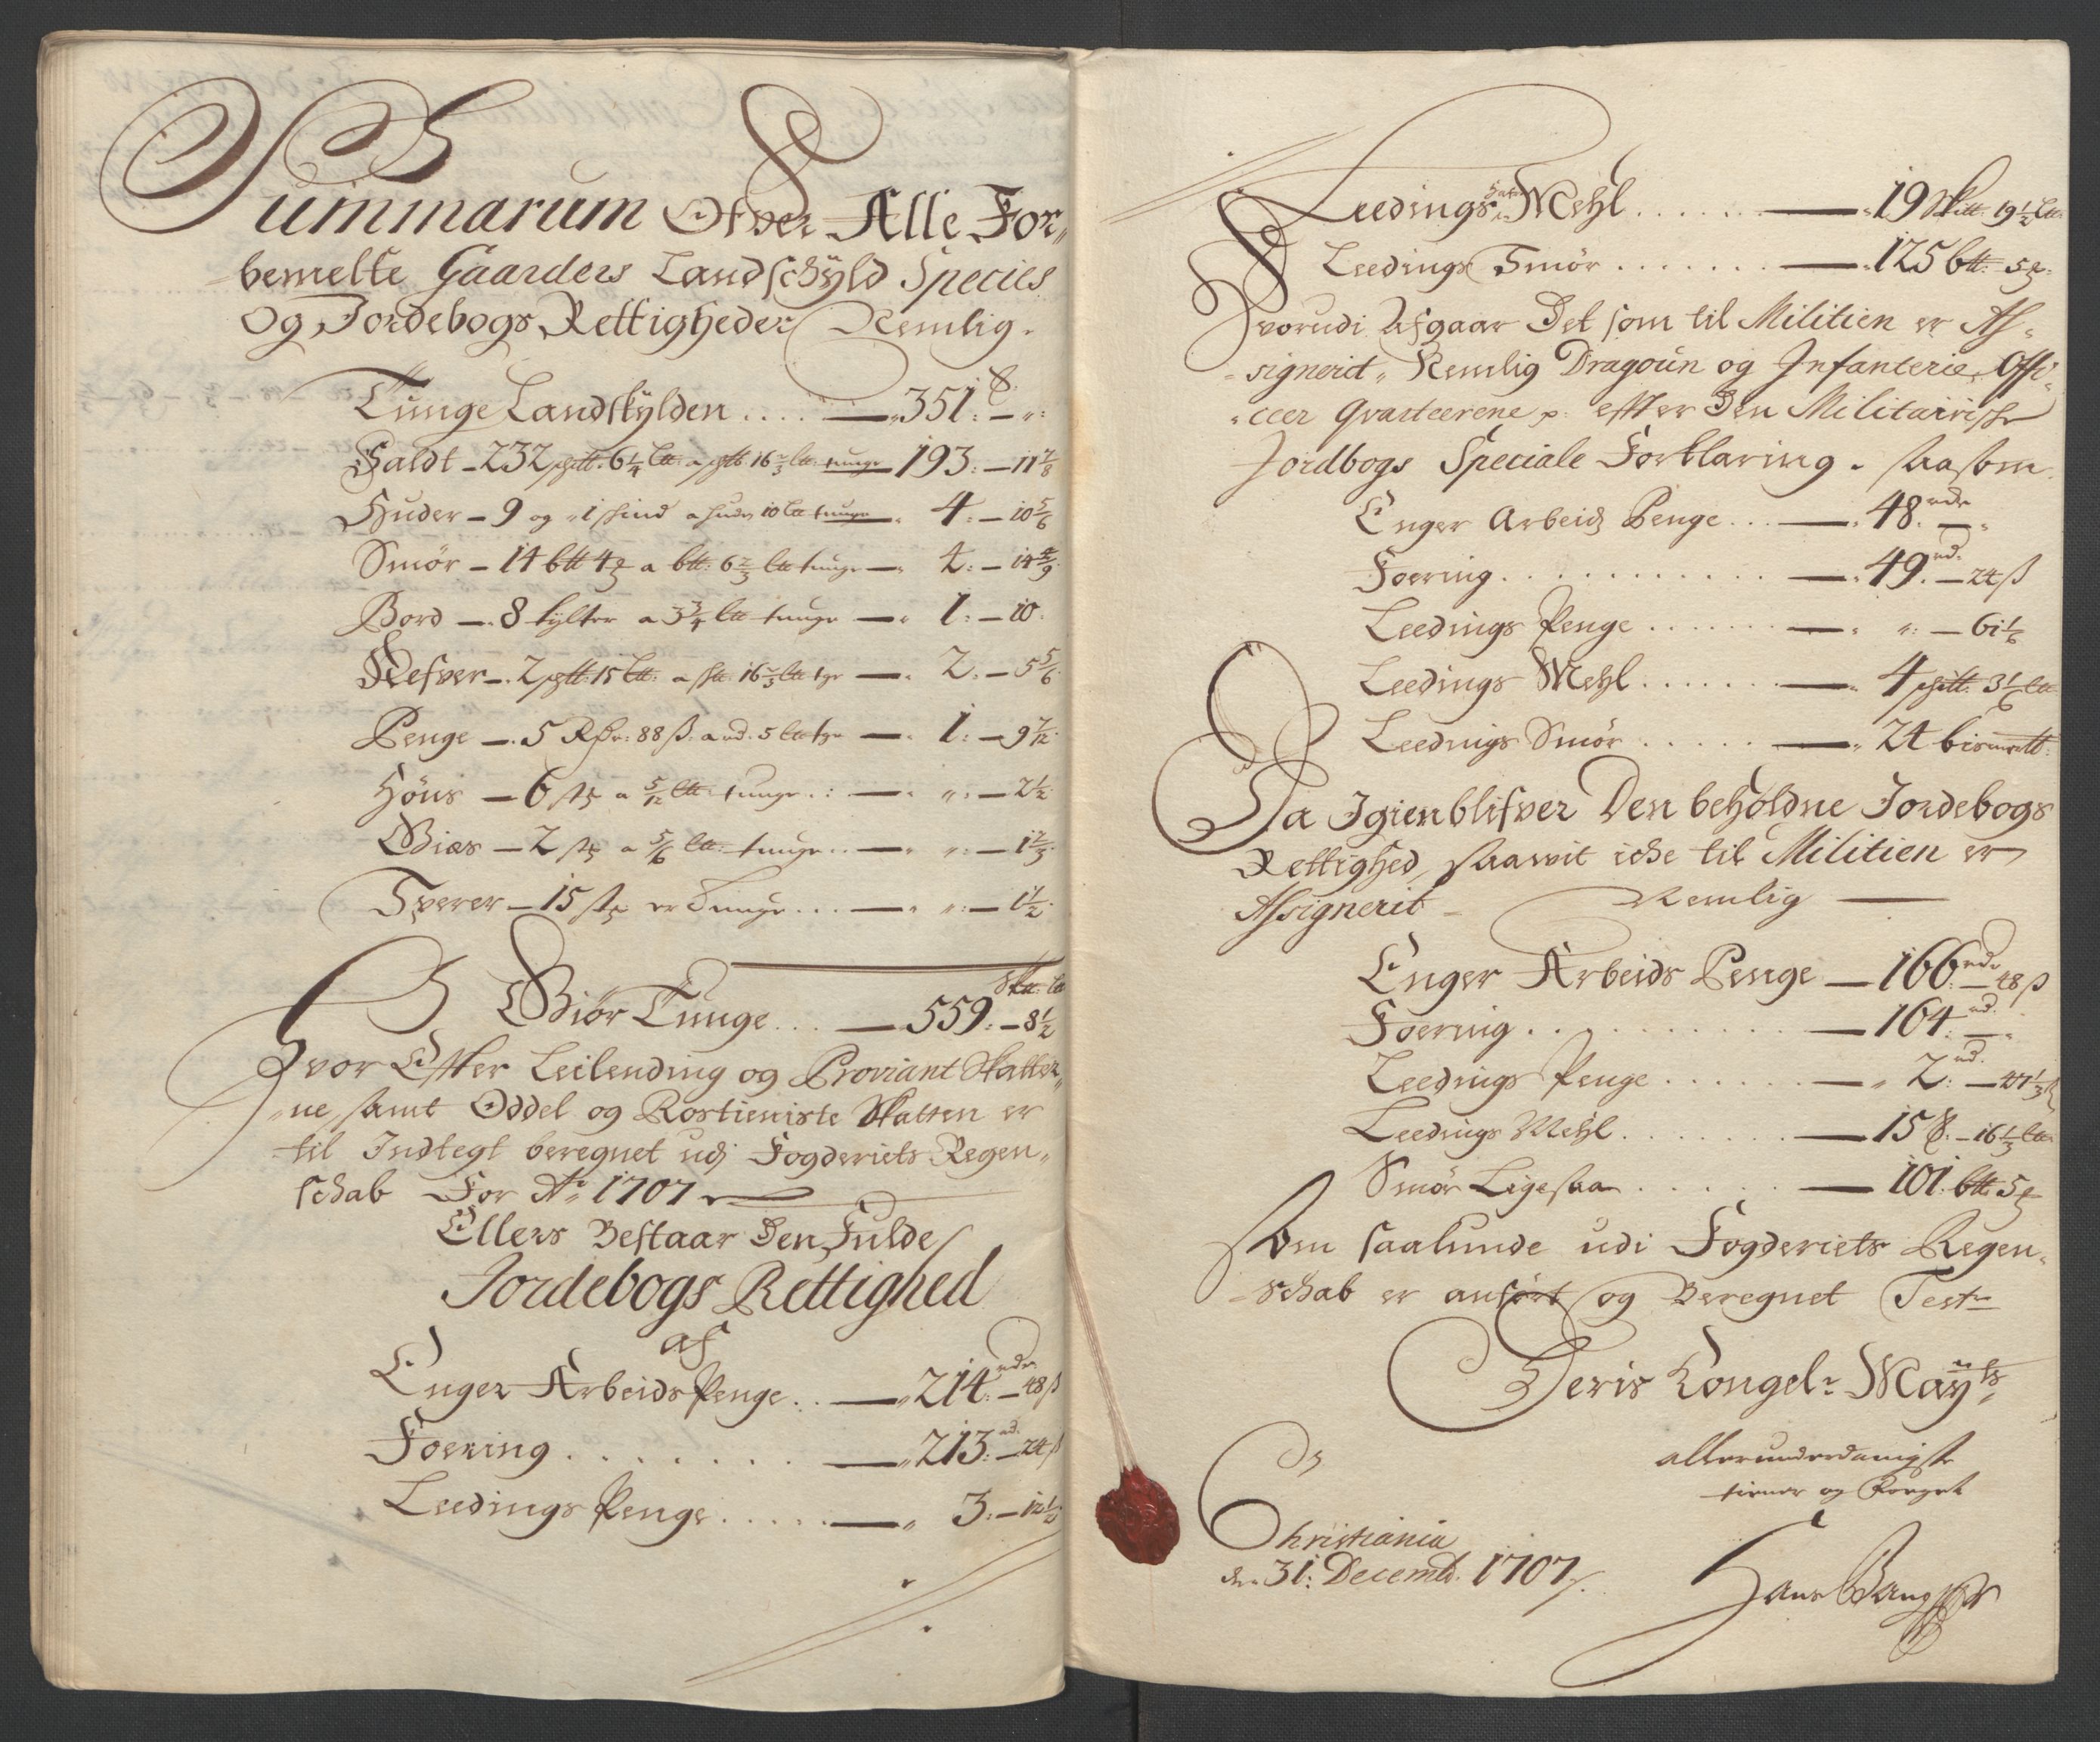 Summarum Ofver Alle For„
bemelte Gaarders Landschÿld Species
Og Jordebogs Rettigheder Nemlig.
Tunge Landskÿlden .... — 351: — „:
Saldt – 232 6 1/4 a 16 2/3 tunge — 193: — 11 7/8
Huder – 9 og 1 skind a hude 10 tunge — 4: — 10 5/6
Smör – 14 btt 4 a btt: 6 2/3 tunge — 2: — 14 4/9
Bord — 8 tÿlter a 3 3/4 tunge — 1: — 10.
Nefver – 2 15 a 16 2/3 — 2: — 5 5/6
Penge — 5 Rdr: 88 ß. a rd. 5 — 1: — 9 7/12
Höns — 6 st a 5/12 tunge .: — „: — 2 1/2
Bias – 2 st a 5/6 tunge .. — „: — 1 2/3
Sverer – 15 st er Tunge ... — „: — 1 1/2
Giör Tunge ... — 559: — 8 1/2
Hvor Efter Leilending og Proviant Skatter„
„ne, samt Oddel og Rostieniste Skatten er
til Indtegt beregnet udj Fogderiets Regen„
schab For Ao 1707
Ellers Bestaar Den Fulde
Jordebogs Rettighed
af
Enger Arbeids Penge .. — 214: rdr — 48 ß
Foering ....... — 213: rd. — 24 ß
Leedings Penge ..... — 3: — 12 1/2
Leedings Mehl ..... — 19 19 1/2
Leedings Smör ....... — 125 btt: 5
Hvorudi Afgaar Det som til Militien er As-
signerit, Nemlig Dragoun og Infanterie Offi-
„ceer Qvarteerene p: effter Den Militairische
Jordbogs Speciale Forklaring. saasom
Enger Arbeids Penge ... — 48: rdr —
Foering ........... — 49: rd. — 24 ß
Leedings Penge ....... — „: — 61 1/6
Leedings Mehl ...... — 4 3 1/6
Leedings Smör ..... — 24 bismrtt:
Da Igien blifver Den beholdne Jordebogs
Rettighed, saawit iche til Militien er
Assignerit – Nemlig —
Enger Arbeids Penge — 166: rdr — 48 ß
Foering .......... — 164: rd. —
Leedings Penge ...... — 2: rd. — 47 1/3 ß
Leedings Mehl ....... — 15 — 16 1/3
Smör Ligesaa ..... — 101 btt 5
Som saalunde udi Fogderiets Regen-
-schab er anfört og Beregnet Test
Deris Kongel: Maÿts
allerunderdanigste
tiener og Foeget
Christiania
den 31: Decembr. 1707
Hans